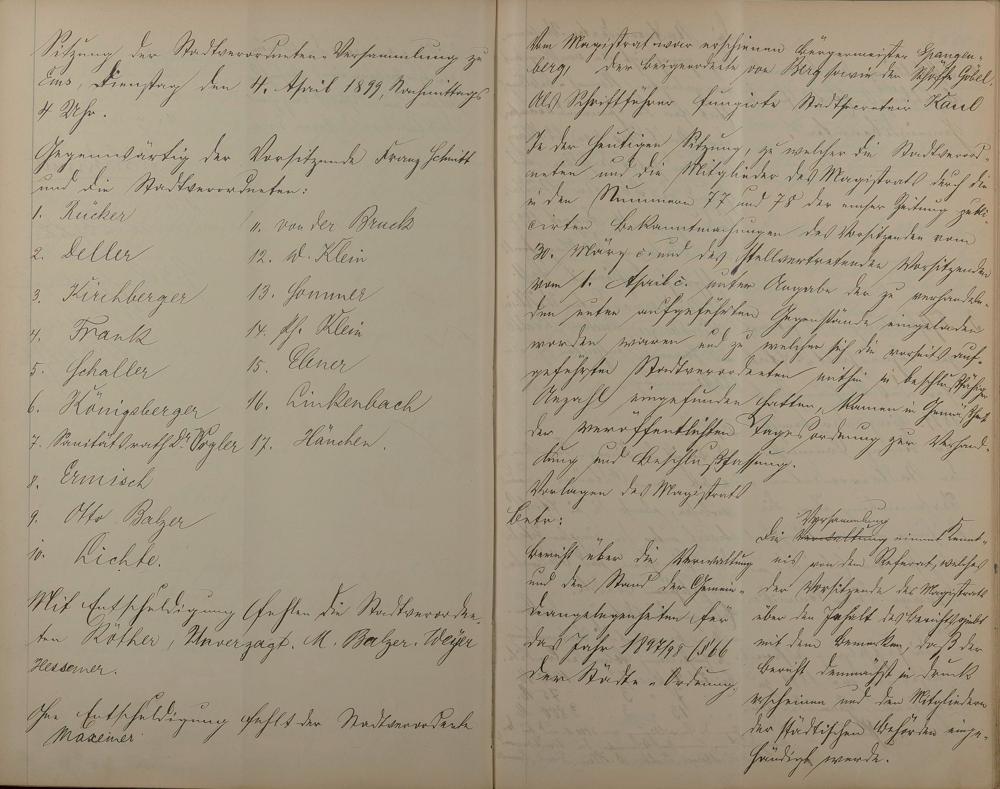 Sitzung der Stadtverordneten-Versammlung zu
Ems, Dienstag den 4. April 1899, Nachmittags
4 Uhr.
Gegenwärtig der Vorsitzende Franz Schmitt
und die Stadtverordneten:
1. Rücker
2. Deller
3. Kirchberger
4. Frank
5. Schaller
6. Königsberger
7. Sanitätsrath Dr. Vogler
8. Ermisch
9. Otto Balzer
10. Lichte.
11. von der Bruck
12. W. Klein
13. Sommer
14. Ph. Klein
15. Ebner
16. Linkenbach
17. Hänchen.
Mit Entschuldigung fehlen die Stadtverordne-
ten Röther, Unverzagt, M. Balzer, Weyer
Hessemer.
Ohne Entschuldigung fehlt der Stadtverordnete
Maxeiner
Vom Magistrat war erschienen Bürgermeister Spangen-
berg, der Beigeordnete von Berg sowie der Schöffe Göbel.
Als Schriftführer fungirte Stadtsecretair Kaul
In der heutigen Sitzung, zu welcher die Stadtverord-
neten und die Mitglieder des Magistrats durch die
in den Nummern 77 und 78 der Emser Zeitung publi-
cirten Bekanntmachungen des Vorsitzenden vom
30. März c. und des stellvertretenden Vorsitzenden
vom 1. April c. unter Angabe der zu verhandeln-
den unten aufgeführten Gegenstände eingeladen
worden waren und zu welcher sich die vorseits auf-
geführten Stadtverordneten mithin in beschlußfähiger
Anzahl eingefunden hatten, kamen in Gemäßheit
der veröffentlichten Tagesordnung zur Verhand-
lung und Beschlußfassung.
Vorlagen des Magistrats
Betr:
Bericht über die Verwaltung
und den Stand der Gemein-
deangelegenheiten für
das Jahr 1897/98 §66
der Städte-Ordnung.
Versammlung
Die Verwaltung nimmt Kennt-
nis von dem Referat, welches
der Vorsitzende des Magistrats
über den Inhalt des Berichts giebt
mit dem Bemerken, daß der
Bericht demnächst in Druck
erscheinen und den Mitgliedern
der städtischen Behörden einge-
händigt werde.